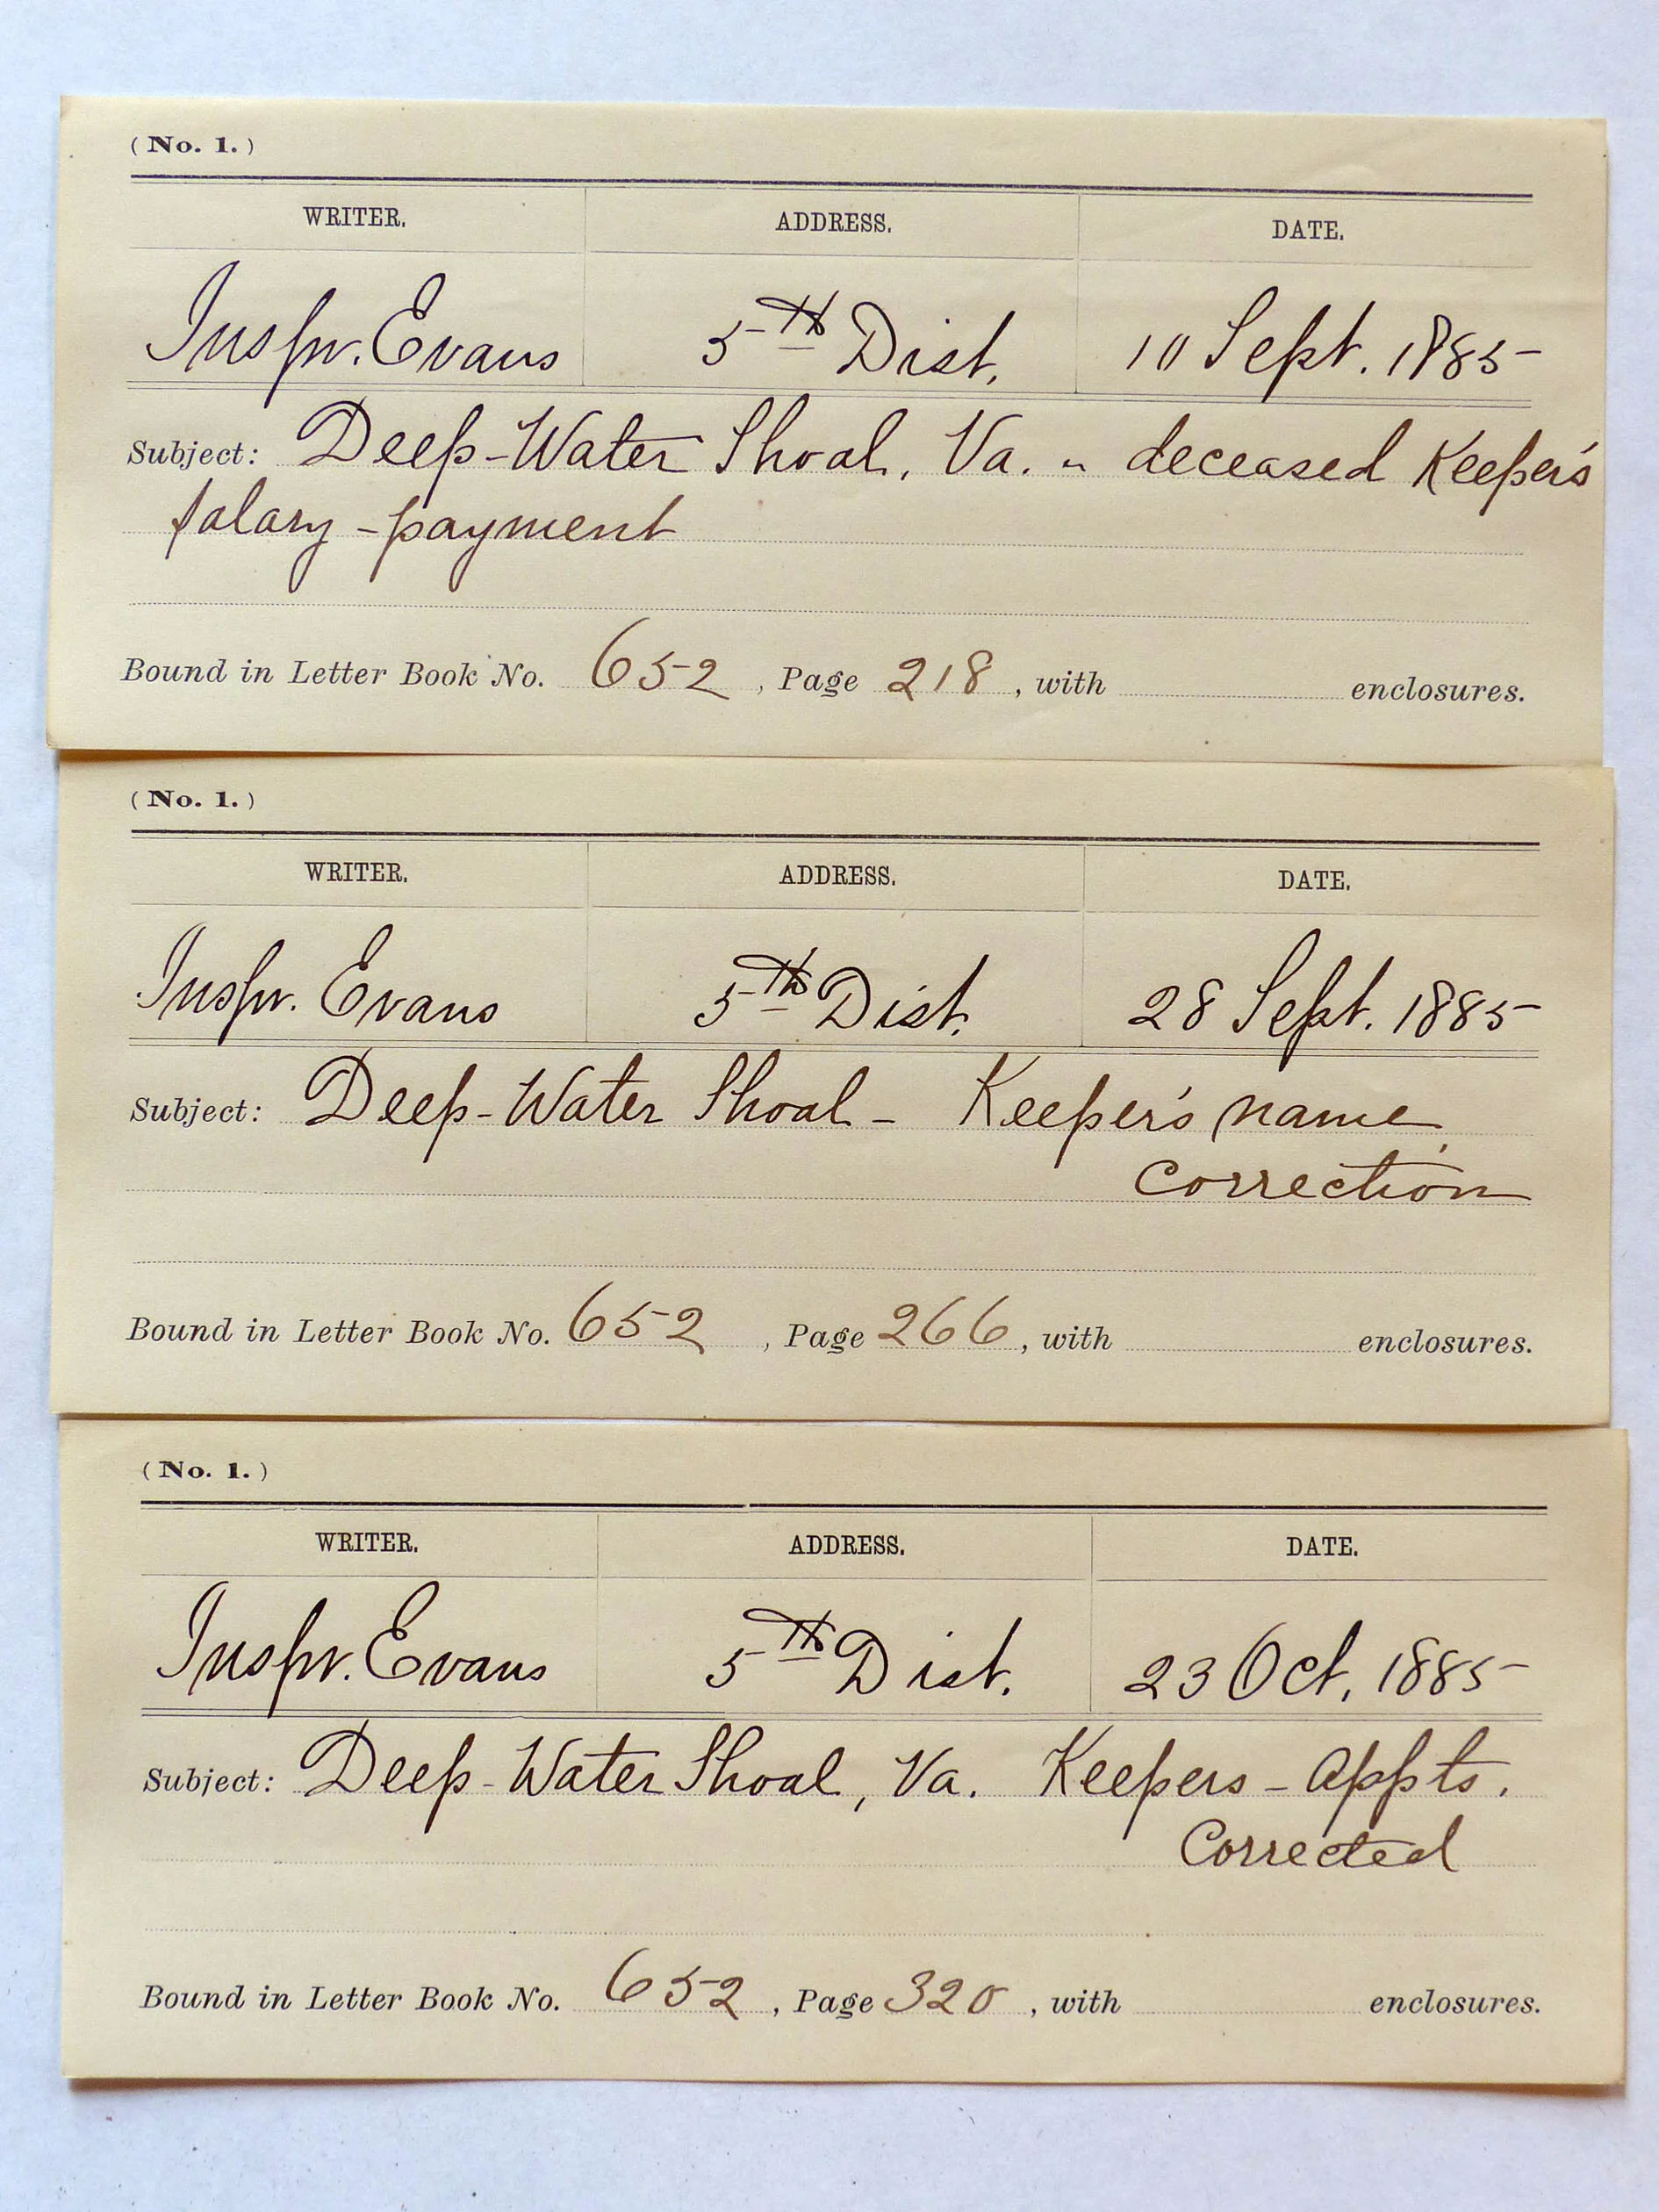 (No. 1.)
WRITER. ADDRESS. DATE.
Inspr. Evans 5th Dist. 10 Sept. 1885
Subject: Deep-Water Shoal, Va. - deceased Keeper's
salary - payment
Bound in Letter Book No. 652, Page 218, with enclosures.
(No. 1.)
WRITER. ADDRESS. DATE.
Inspr. Evans 5th Dist. 28 Sept. 1885
Subject: Deep-Water Shoal - Keeper's name,
correction
Bound in Letter Book No. 652, Page 266, with enclosures.
(No. 1.)
WRITER. ADDRESS. DATE.
Inspr. Evans 5th Dist. 23 Oct. 1885
Subject: Deep-Water Shoal, Va. Keepers - Appts.
Corrected
Bound in Letter Book No. 652, Page 320, with enclosures.